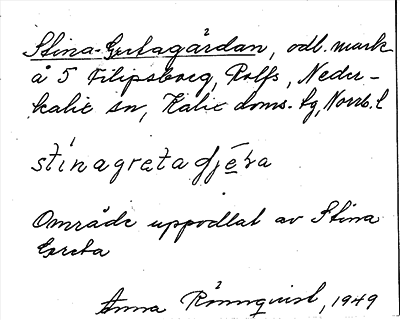 Stina-Gretagärdan, odl. mark
å 5 Filipsborg, Rolfs, Neder-
kalix sn, Kalix doms. tg, Norrb. l
stinagretadjéṛa
Område uppodlat av Stina
Greta
Anna Rönnquist, 1949